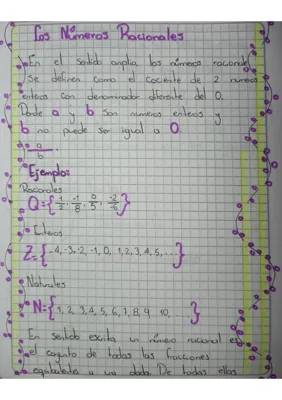 Los Números Racionales
En el sentido amplio, los números racionales
se definen como el cociente de 2 numeros
enteros con denominador diferente del 0.
Donde a y b son numeros enteros y
b no puede ser igual a 0.
a
b
Ejemplo:
Racionales
Q={ 1/2, -1/8, 0/5, -2/-6 }
Enteros
Z={ -4,-3,-2,-1, 0, 1, 2, 3, 4, 5, ... }
Naturales
N={ 1, 2, 3, 4, 5, 6, 7, 8, 9, 10, }
En sentido
el conjunto de todas las fracciones
a una dada. De todas ellas